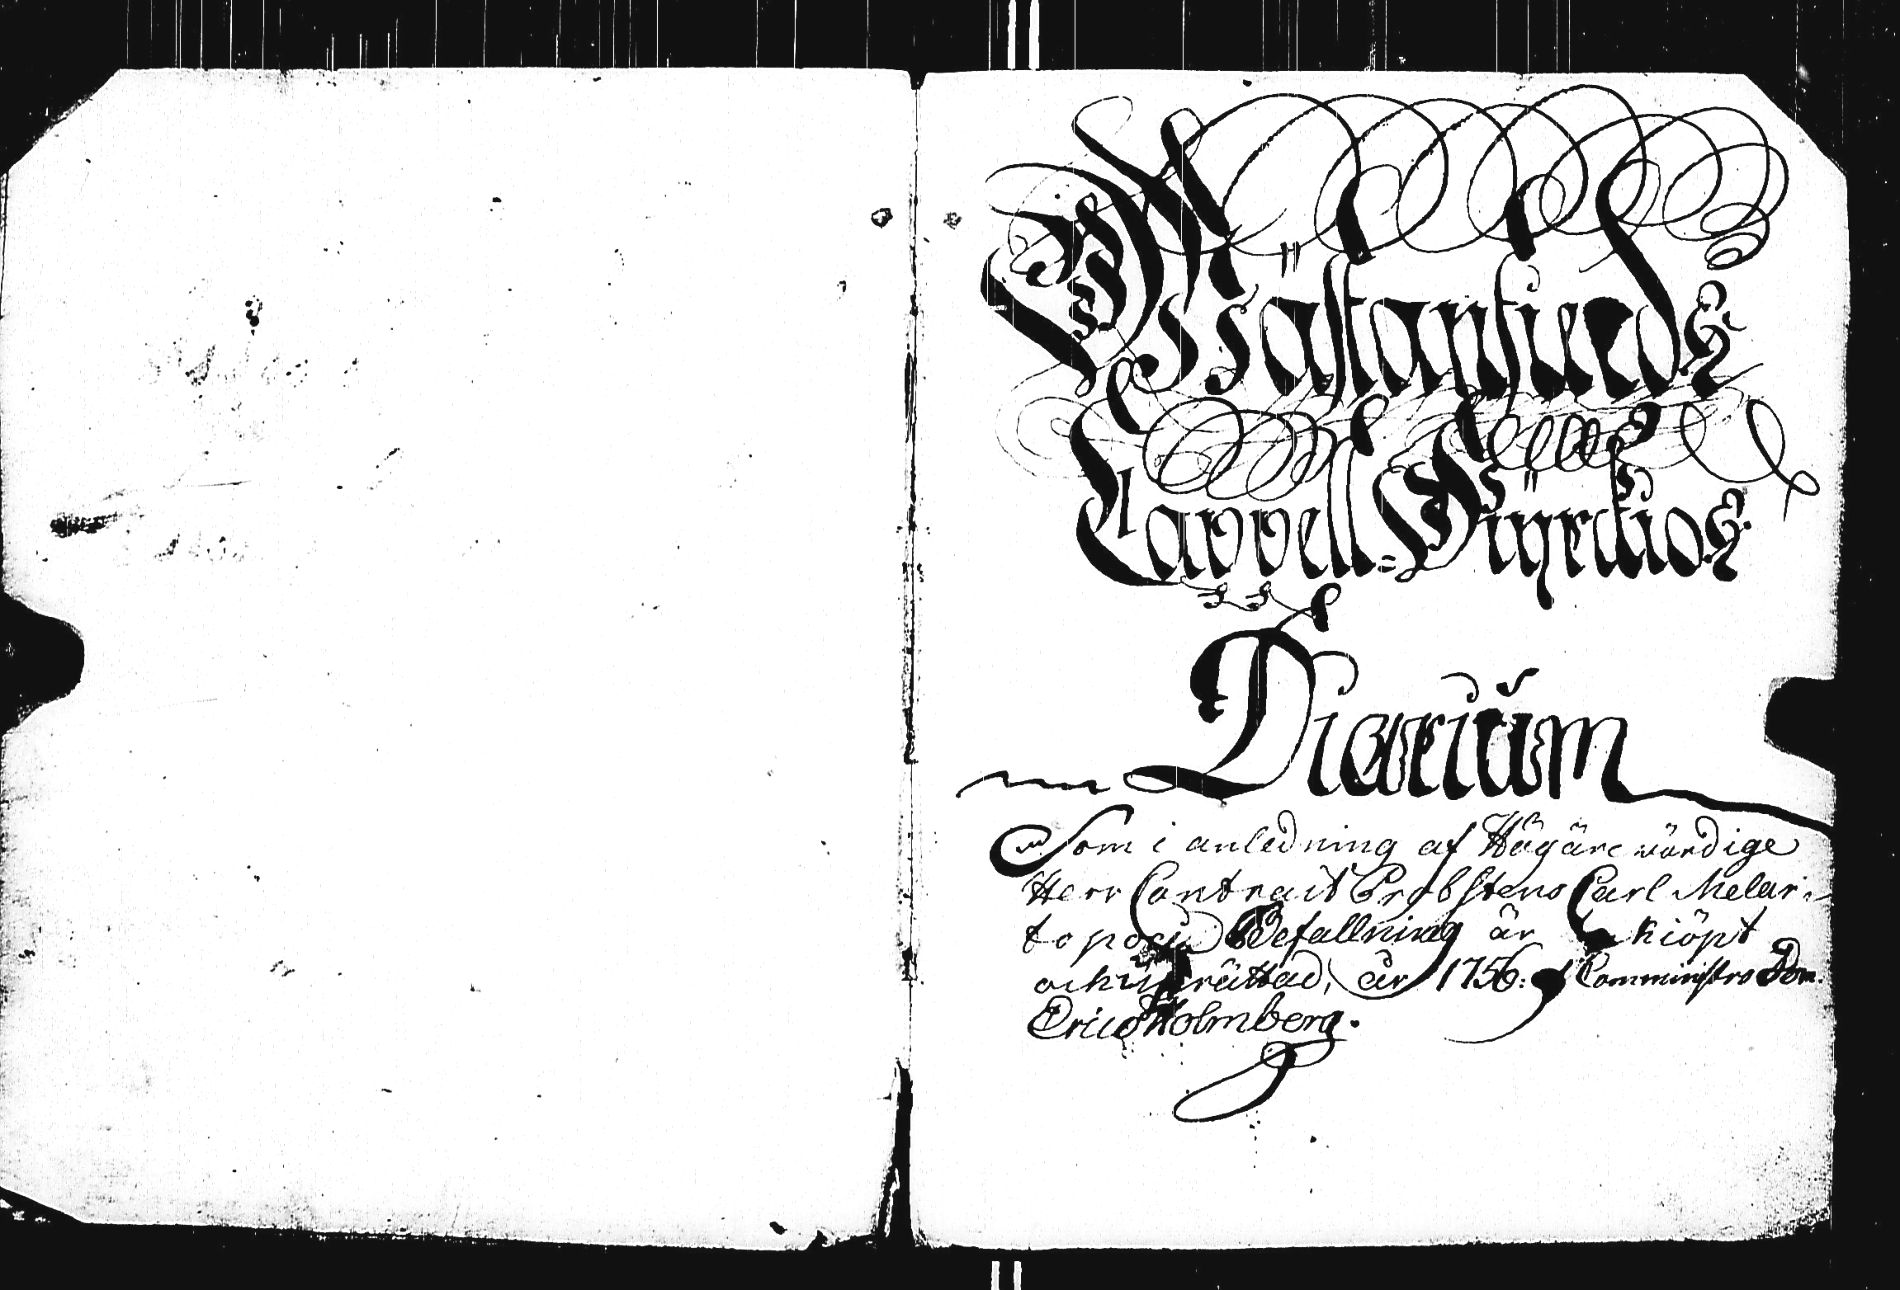 Wästanfierds
Cappell-Kÿrckios
Diarium
Som i anledning af Högäre wördige
Herr Contract Probstens Carl Melar-
topoei Befallning är Inkiöpt
och uprättad, åhr 1756: af Comministro Dom.
Erico Holmberg.